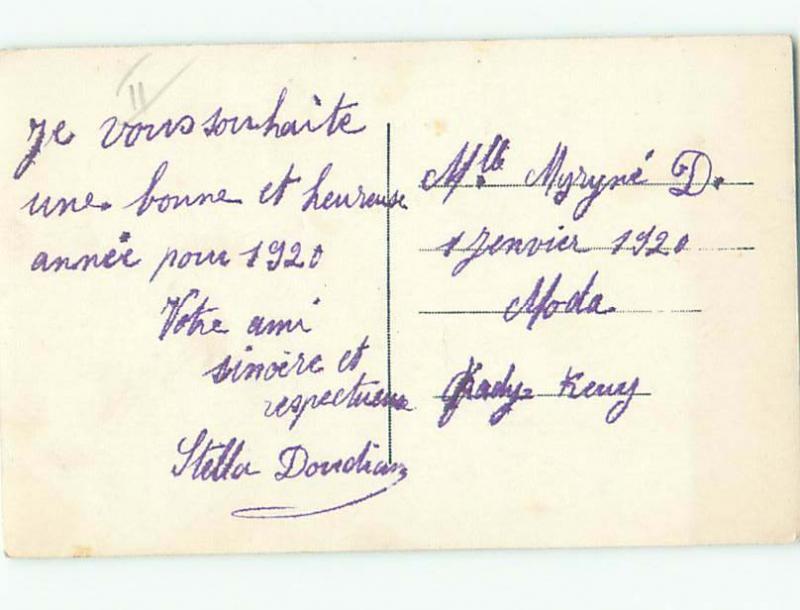 11
Je vous souhaite
une bonne et heureuse
année pour 1920
Votre ami
sincère et
respectueux
Stella Dondian
Mlle Myryné D.
1 Jenvier 1920
Moda.
Kady-Keuy